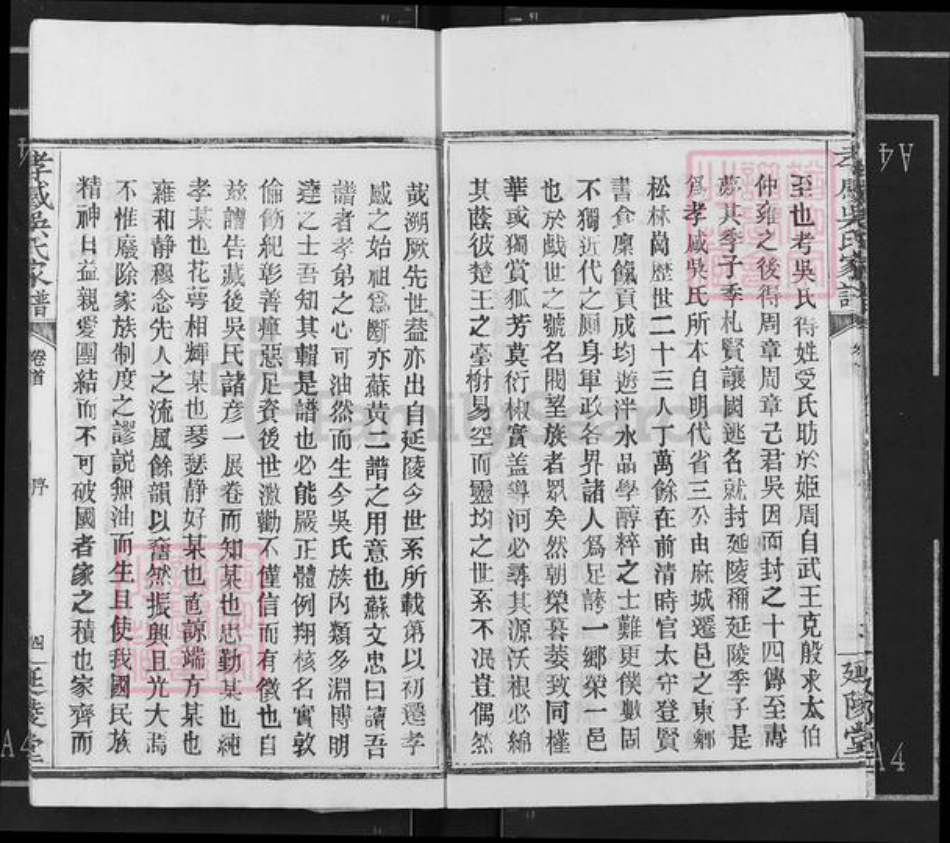 孝感吳氏家譜
延陵堂
至也考吳氏得姓受氏昉於姬周自武王克殷求太伯
仲雍之後得周章周章已君吳因而封之十四傳至壽
夢其季子季札賢讓國逃名就封延陵稱延陵季子是
爲孝感吳氏所本自明代省三公由麻城遷邑之東鄉
松林崗歷世二十三人丁萬餘在前清時官太守登賢
書食廩餼貢成均遊泮水品學醇粹之士難更僕數固
不獨近代之廁身軍政各界諸人爲足誇一鄉榮一邑
也於戲世之號名閥望族者眾矣然朝榮暮萎致同槿
華或獨賞孤芳莫衍椒實盖導河必尋其源沃根必綿
其蔭彼楚王之臺榭易空而靈均之世系不冺豈偶然
哉溯厥先世葢亦出自延陵今世系所載第以初遷孝
感之始祖爲斷亦蘇黃二譜之用意也蘇文忠曰讀吾
譜者孝弟之心可油然而生今吳氏族內類多淵博明
達之士吾知其輯是譜也必能嚴正體例翔核名實敦
倫飭紀彰善癉惡足資後世激勸不僅信而有徵也自
玆譜告藏後吳氏諸彥一展卷而知某也忠勤某也純
孝某也花萼相輝某也琴瑟静好某也直諒端方某也
雍和静穆念先人之流風餘韻以奮然振興且光大焉
不惟廢除家族制度之謬説無油而生且使我國民族
精神日益親愛團結而不可破國者家之積也家齊而
孝感吳氏家譜
卷首
序
四
延陵堂
A4
A4
A4
FamilySearch